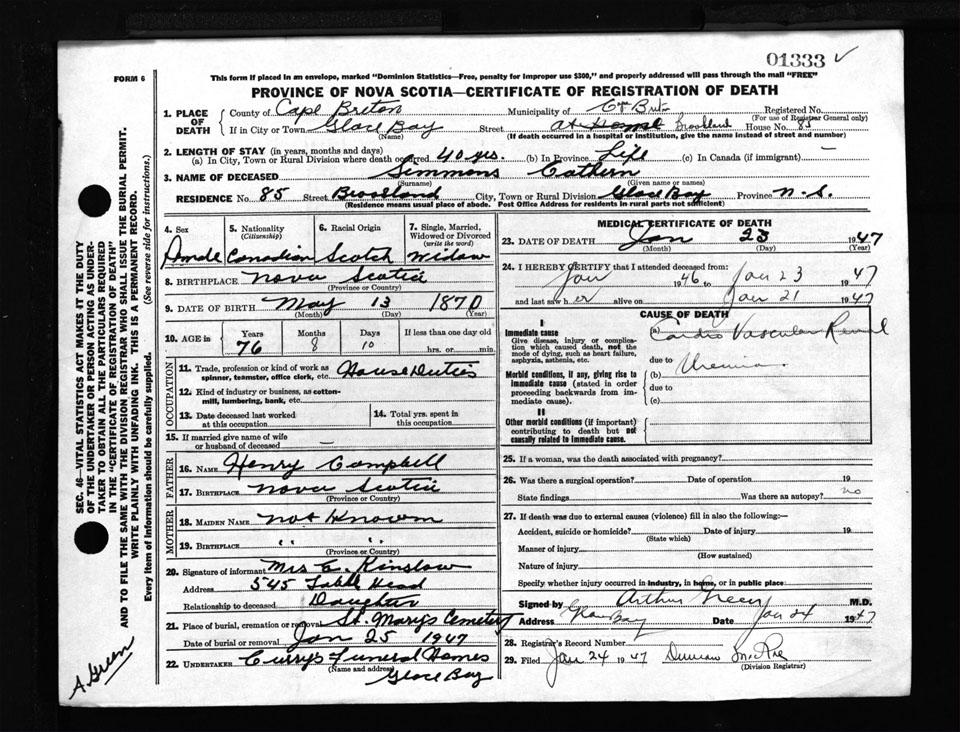 01333
FORM 6
This form if placed in an envelope, marked "Dominion Statistics—Free, penalty for improper use $300," and properly addressed will pass through the mail "FREE"
PROVINCE OF NOVA SCOTIA—CERTIFICATE OF REGISTRATION OF DEATH
1. PLACE OF DEATH County of Cape Breton Municipality of Cape Breton Registered No.
(For use of Registrar General only)
If in City or Town Glace Bay Street at Home Brookland House No. 85
(Name) (If death occurred in a hospital or institution, give the name instead of street and number)
2. LENGTH OF STAY (in years, months and days)
(a) In City, Town or Rural Division where death occurred 40 yrs. (b) In Province Life (c) In Canada (if immigrant) —
3. NAME OF DECEASED Simmons Cathern
(Surname) (Given name or names)
RESIDENCE No. 85 Street Brookland City, Town or Rural Division Glace Bay Province N.S.
(Residence means usual place of abode. Post Office Address for residents in rural parts not sufficient)
4. Sex 5. Nationality (Citizenship) 6. Racial Origin 7. Single, Married, Widowed or Divorced (write the word)
Canadian Scotch Widow
8. BIRTHPLACE Nova Scotia
(Province or Country)
9. DATE OF BIRTH May 13 1870
(Month) (Day) (Year)
10. AGE in Years Months Days If less than one day old
76 8 10 hrs. or min.
OCCUPATION
11. Trade, profession or kind of work as spinner, teamster, office clerk, etc. House Duties
12. Kind of industry or business, as cotton-mill, lumbering, bank, etc.
13. Date deceased last worked at this occupation 14. Total yrs. spent in this occupation
15. If married give name of wife or husband of deceased —
FATHER
16. NAME Henry Campbell
17. BIRTHPLACE Nova Scotia
(Province or Country)
MOTHER
18. MAIDEN NAME Not Known
19. BIRTHPLACE " "
(Province or Country)
20. Signature of informant Mrs. A. Kinslow
Address 545 Table Head
Relationship to deceased Daughter
21. Place of burial, cremation or removal St. Marys Cemetery
Date of burial or removal Jan 25 1947
22. UNDERTAKER Curry's Funeral Homes
(Name and address)
Glace Bay
MEDICAL CERTIFICATE OF DEATH
23. DATE OF DEATH Jan 23 1947
(Month) (Day) (Year)
24. I HEREBY CERTIFY that I attended deceased from:
Jan 1946 to Jan 23 1947
and last saw her alive on Jan 21 1947
CAUSE OF DEATH
I
Immediate cause
Give disease, injury or complication which caused death, not the mode of dying, such as heart failure, asphyxia, asthenia, etc.
(a) Cardio Vascular Renal
due to
Morbid conditions, if any, giving rise to immediate cause (stated in order proceeding backwards from immediate cause).
(b) Uremia.
due to
(c)
II
Other morbid conditions (if important) contributing to death but not causally related to immediate cause.
25. If a woman, was the death associated with pregnancy?
26. Was there a surgical operation? Date of operation 19
State findings Was there an autopsy? no
27. If death was due to external causes (violence) fill in also the following:—
Accident, suicide or homicide? Date of injury 19
(State which)
Manner of injury
(How sustained)
Nature of injury
Specify whether injury occurred in industry, in home, or in public place
Signed by Arthur Green M.D.
Address Glace Bay Date Jan 24 1947
28. Registrar's Record Number
29. Filed Jan 24 1947 Duncan McRae
(Division Registrar)
SEC. 46—VITAL STATISTICS ACT MAKES IT THE DUTY
OF THE UNDERTAKER OR PERSON ACTING AS UNDER-
TAKER TO OBTAIN ALL THE PARTICULARS REQUIRED
IN THE "CERTIFICATE OF REGISTRATION OF DEATH"
AND TO FILE THE SAME WITH THE DIVISION REGISTRAR WHO SHALL ISSUE THE BURIAL PERMIT.
WRITE PLAINLY WITH UNFADING INK. THIS IS A PERMANENT RECORD.
Every item of information should be carefully supplied. (See reverse side for instructions.)
A. Green